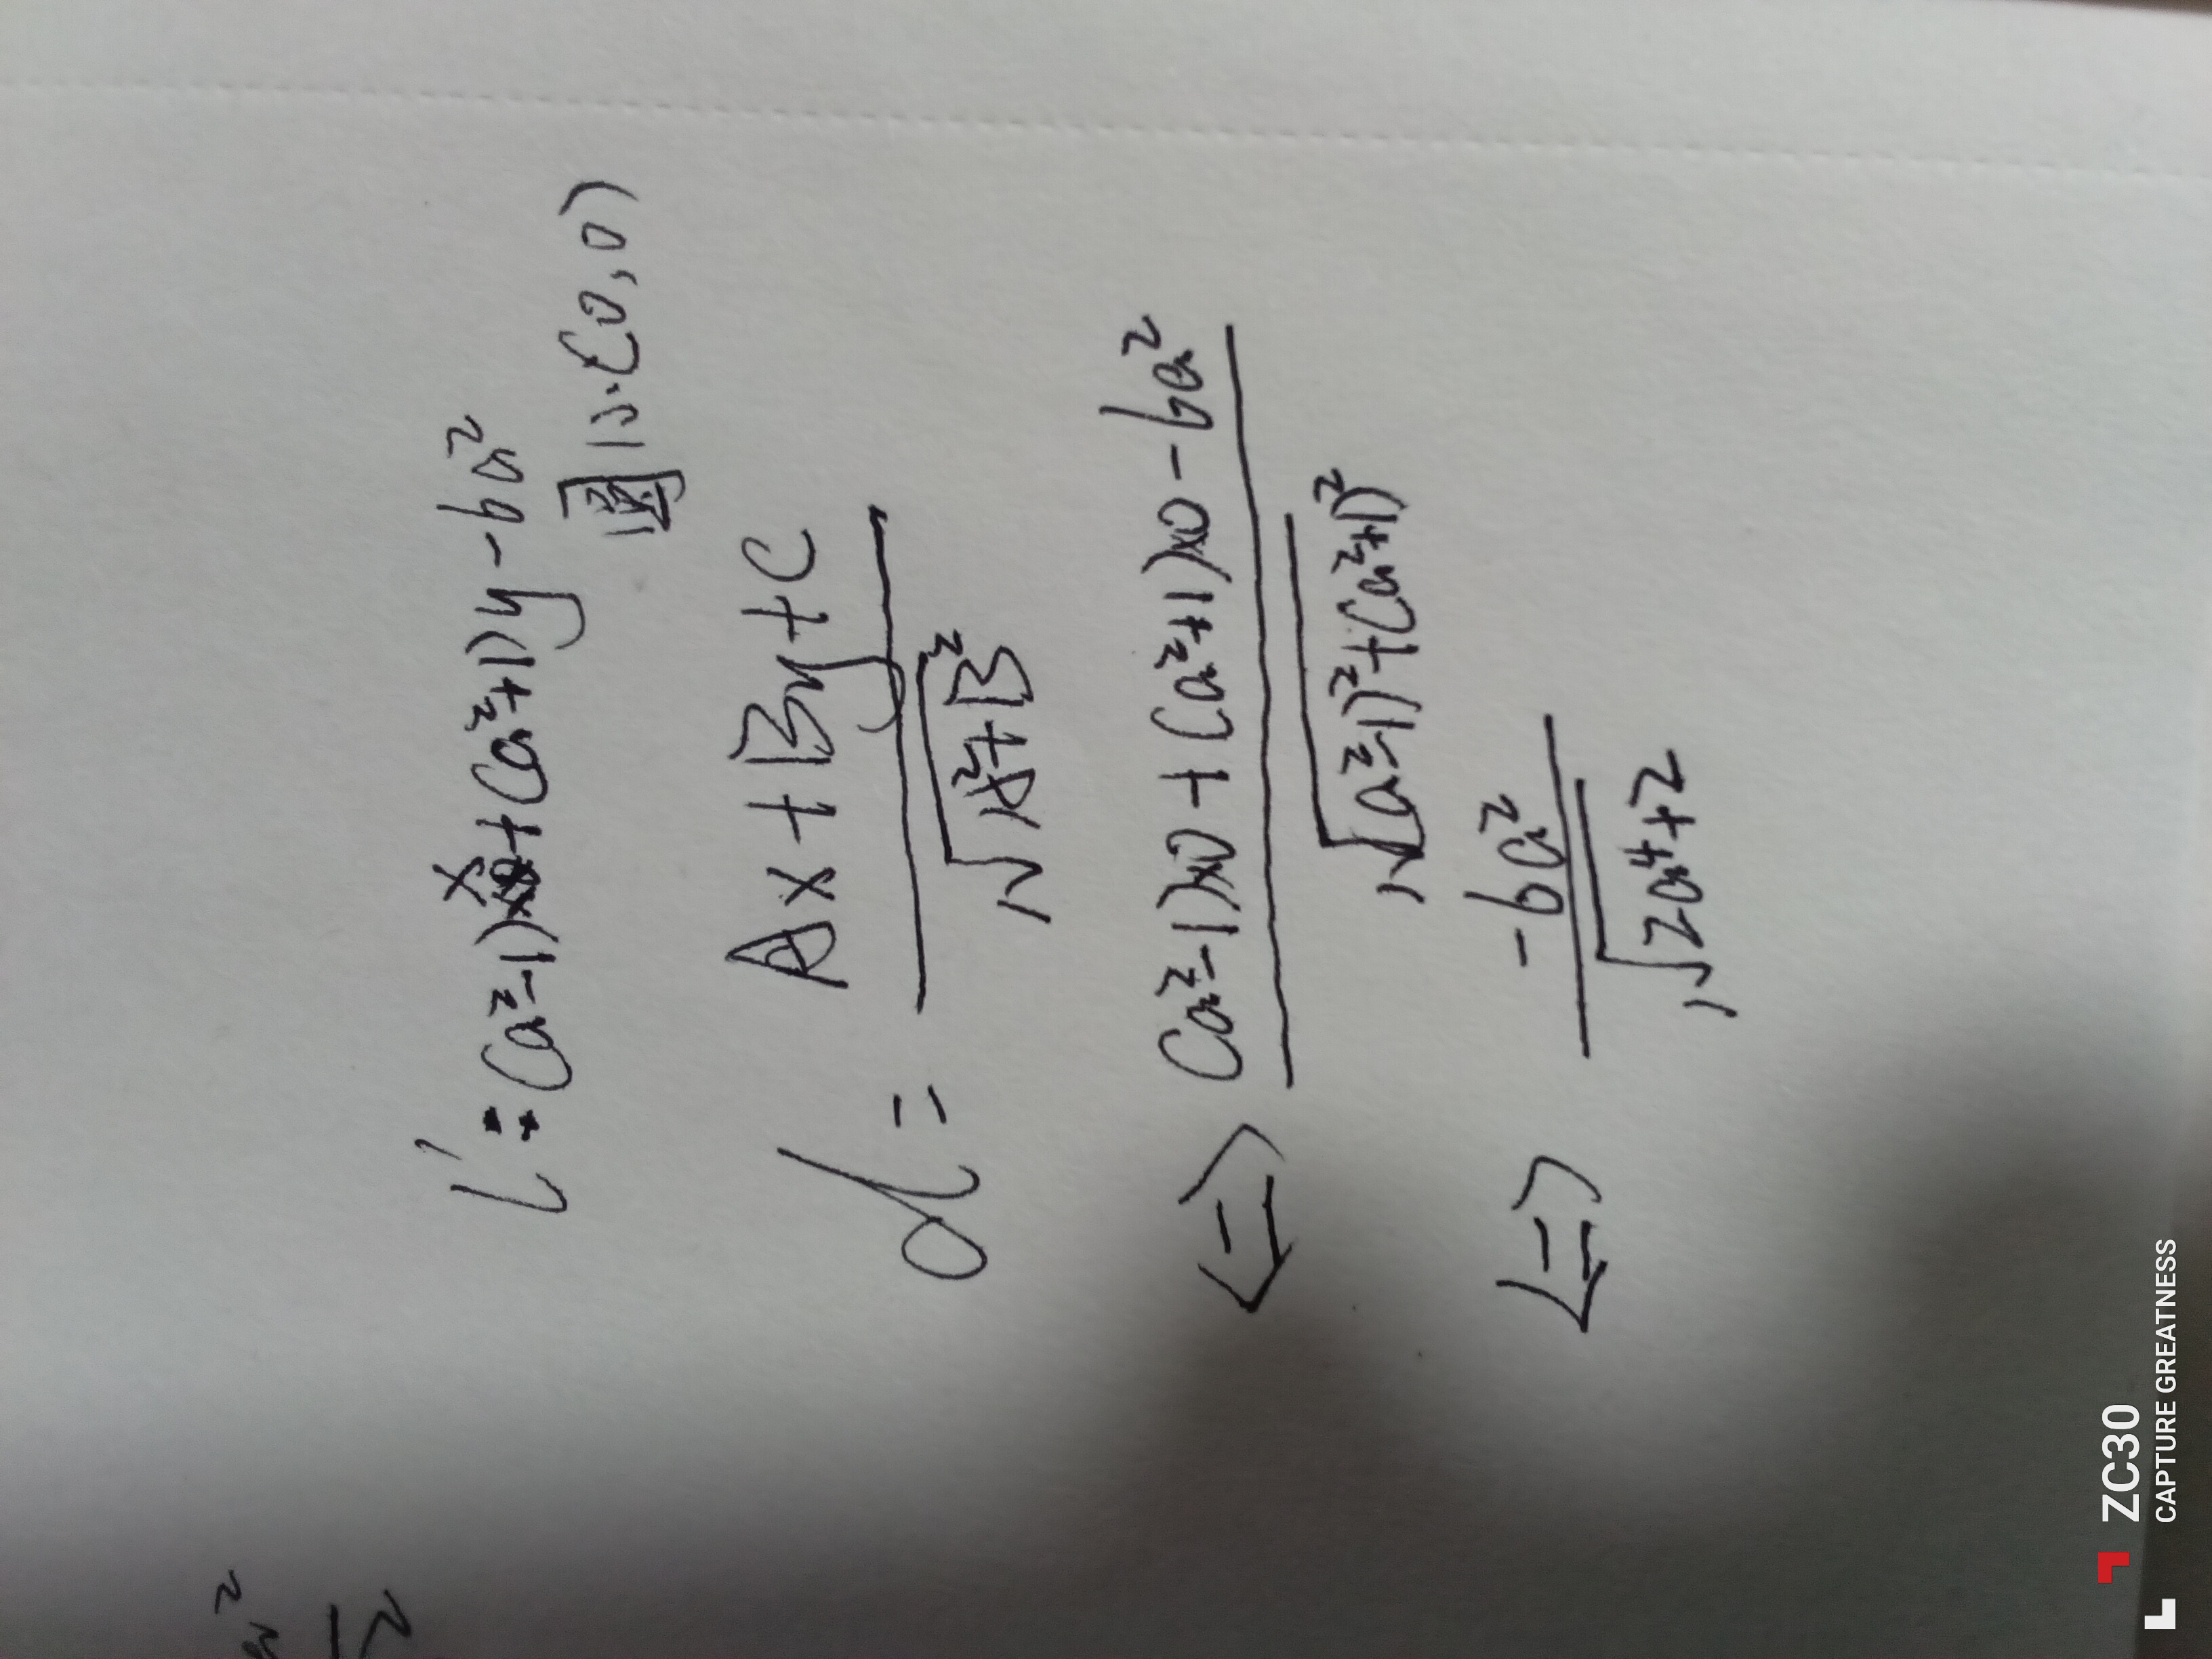 l': (a²-1)x+(a²+1)y-6a²
圆心(0,0)
d = Ax+By+C / √A²+B²
<=> (a²-1)x0+(a²+1)x0-6a² / √(a²-1)²+(a²+1)²
<=> -6a² / √2a⁴+2
ZC30
CAPTURE GREATNESS